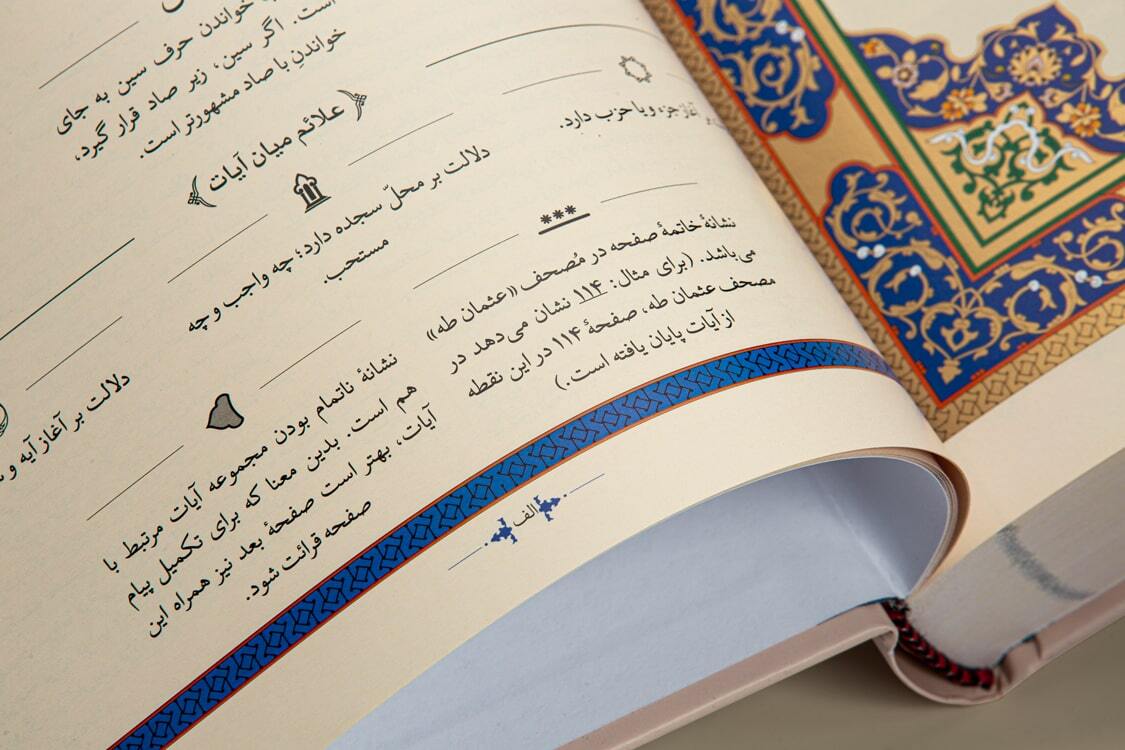 خواندن حرف سین به جای
است. اگر سین، زیر صاد قرار گیرد،
خواندنِ با صاد مشهورتر است.
علائم میان آیات
آغاز جزء و یا حزب دارد.
دلالت بر محلّ سجده دارد؛ چه واجب و چه
مستحب.
***
نشانهٔ خاتمهٔ صفحه در مُصحف «عثمان طه»
می‌باشد. (برای مثال: ۱۱۴ نشان می‌دهد در
مصحف عثمان طه، صفحهٔ ۱۱۴ در این نقطه
از آیات پایان یافته است.)
دلالت بر آغاز آیه و
نشانهٔ ناتمام بودن مجموعه آیات مرتبط با
هم است. بدین معنا که برای تکمیل پیام
آیات، بهتر است صفحهٔ بعد نیز همراه این
صفحه قرائت شود.
الف